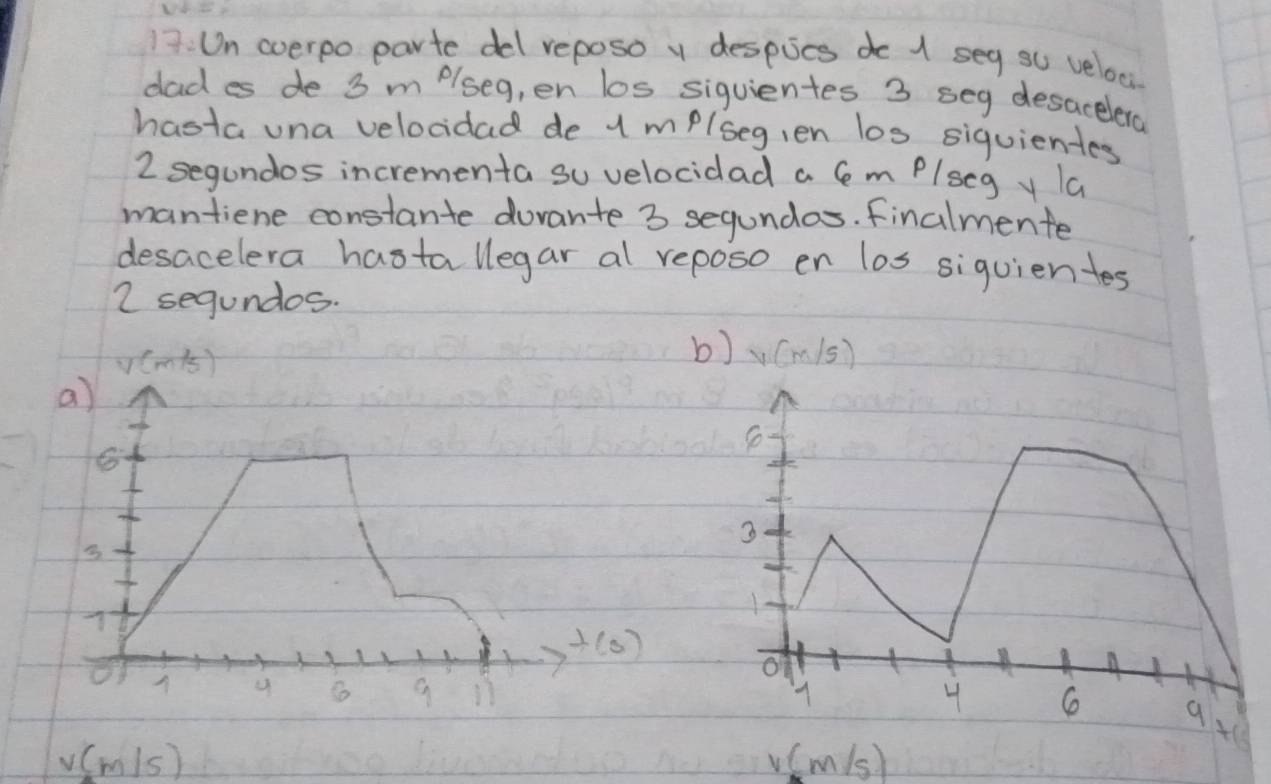 17. Un cuerpo parte del reposo y despúes de 1 seg su veloci-
dad es de 3 m P/seg, en los siguientes 3 seg desacelera
hasta una velocidad de 1 m P/seg, en los siguientes
2 segundos incrementa su velocidad a 6 m P/seg y la
mantiene constante durante 3 segundos. Finalmente
desacelera hasta llegar al reposo en los siguientes
2 segundos.
a) v(m/s)
6
3
1
0 1 4 6 9 11 t(s)
b) v(m/s)
6
3
1
0 1 4 6 9
v(m/s)
v(m/s)